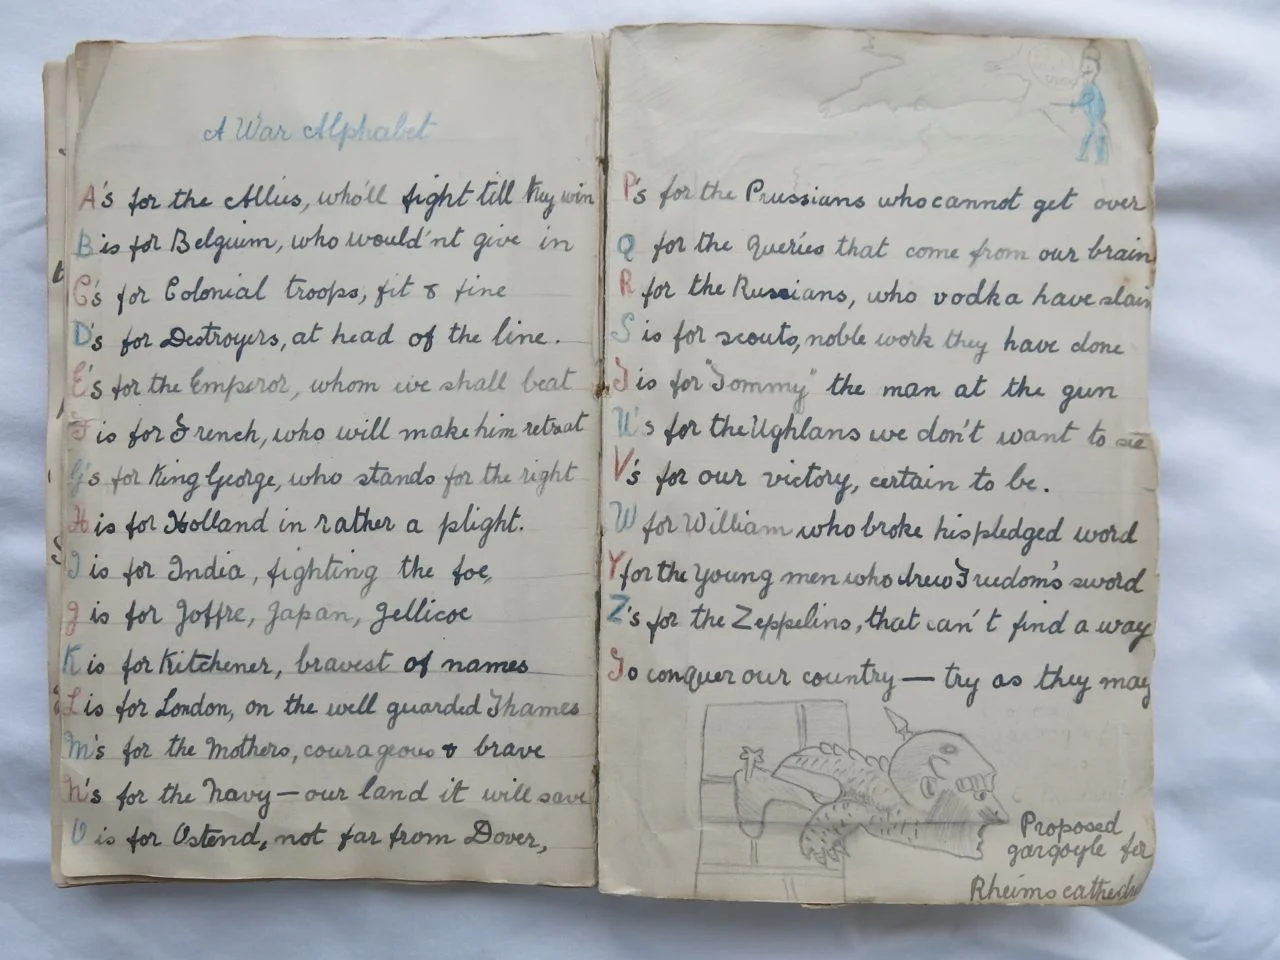 A War Alphabet
A's for the Allies, who'll fight till they win
B is for Belgium, who would'nt give in
C's for Colonial troops, fit & fine
D's for Destroyers, at head of the line.
E's for the Emperor, whom we shall beat
F is for French, who will make him retreat
G's for King George, who stands for the right
H is for Holland in rather a plight.
I is for India, fighting the foe,
J is for Joffre, Japan, Jellicoe
K is for Kitchener, bravest of names
L is for London, on the well guarded Thames
M's for the Mothers, courageous & brave
N's for the Navy — our land it will save
O is for Ostend, not far from Dover,
P's for the Prussians who cannot get over
Q for the Queries that come from our brain
R for the Russians, who vodka have slain
S is for scouts, noble work they have done
T is for "Tommy" the man at the gun
U's for the Ughlans we don't want to see
V's for our victory, certain to be.
W for William who broke his pledged word
Y for the Young men who drew Freedom's sword
Z's for the Zeppelins, that can't find a way
To conquer our country — try as they may
Proposed
gargoyle for
Rheims cathedral